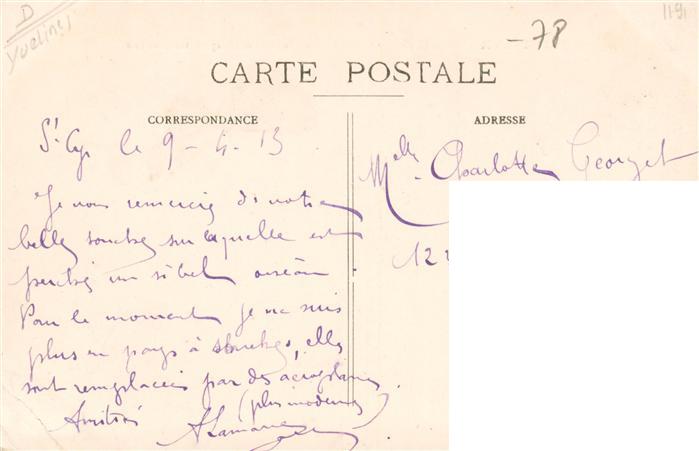 D
Yvelines
-78
1191
CARTE POSTALE
CORRESPONDANCE
ADRESSE
St Cyr le 9-4-13
Melle Charlotte Georget
12
Je vous remercie de votre
belle sur laquelle est
perché un si bel oiseau
Pour le moment je ne suis
plus en pays à elles
sont remplacées par des aéroplanes
(plus moderne)
Amitiés